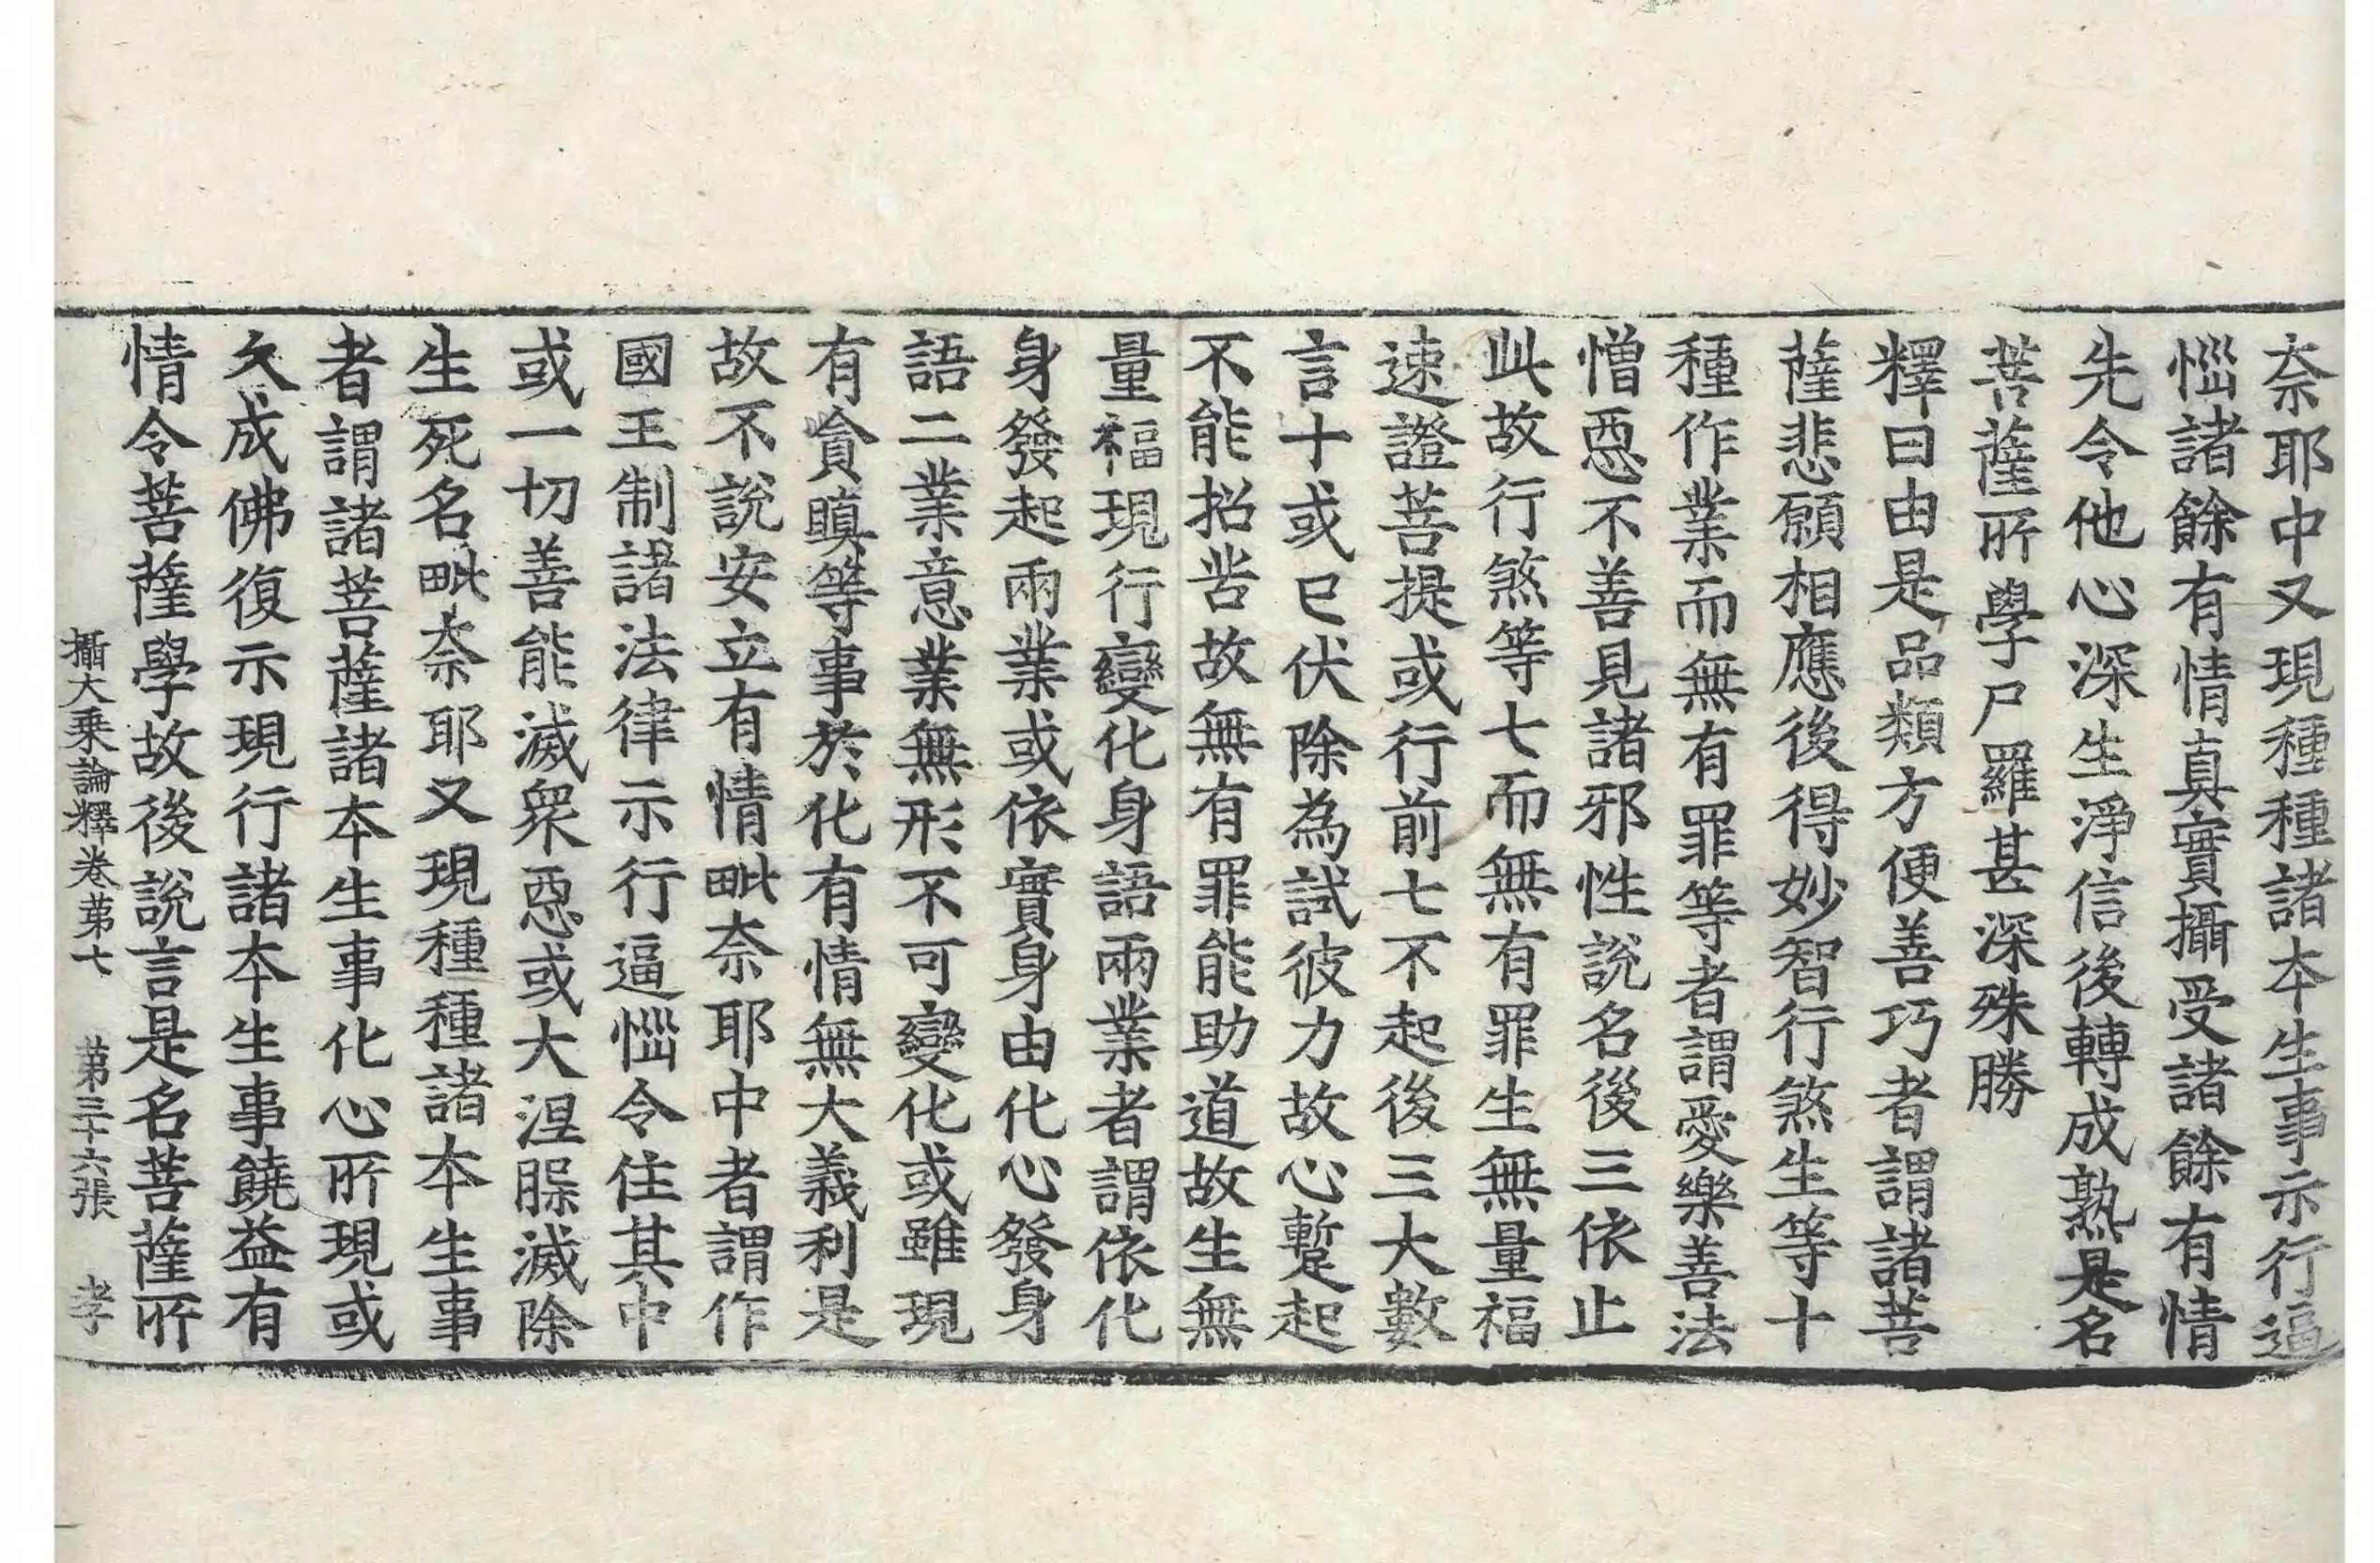 奈耶中又現種種諸本生事示行逼
惱諸餘有情真實攝受諸餘有情
先令他心深生淨信後轉成熟是名
菩薩所學尸羅甚深殊勝
釋曰由是品類方便善巧者謂諸菩
薩悲願相應後得妙智行煞生等十
種作業而無有罪等者謂愛樂善法
憎惡不善見諸邪性說名後三依止
此故行煞等七而無有罪生無量福
速證菩提或行前七不起後三大數
言十或已伏除為試彼力故心蹔起
不能招苦故無有罪能助道故生無
量福現行變化身語兩業者謂依化
身發起兩業或依實身由化心發身
語二業意業無形不可變化或雖現
有貪瞋等事於化有情無大義利是
故不說安立有情毗奈耶中者謂作
國王制諸法律示行逼惱令住其中
或一切善能滅眾惡或大涅槃滅除
生死名毗奈耶又現種種諸本生事
者謂諸菩薩諸本生事化心所現或
久成佛復示現行諸本生事饒益有
情令菩薩學故後說言是名菩薩所
攝大乘論釋卷第七 第三十六張 孝